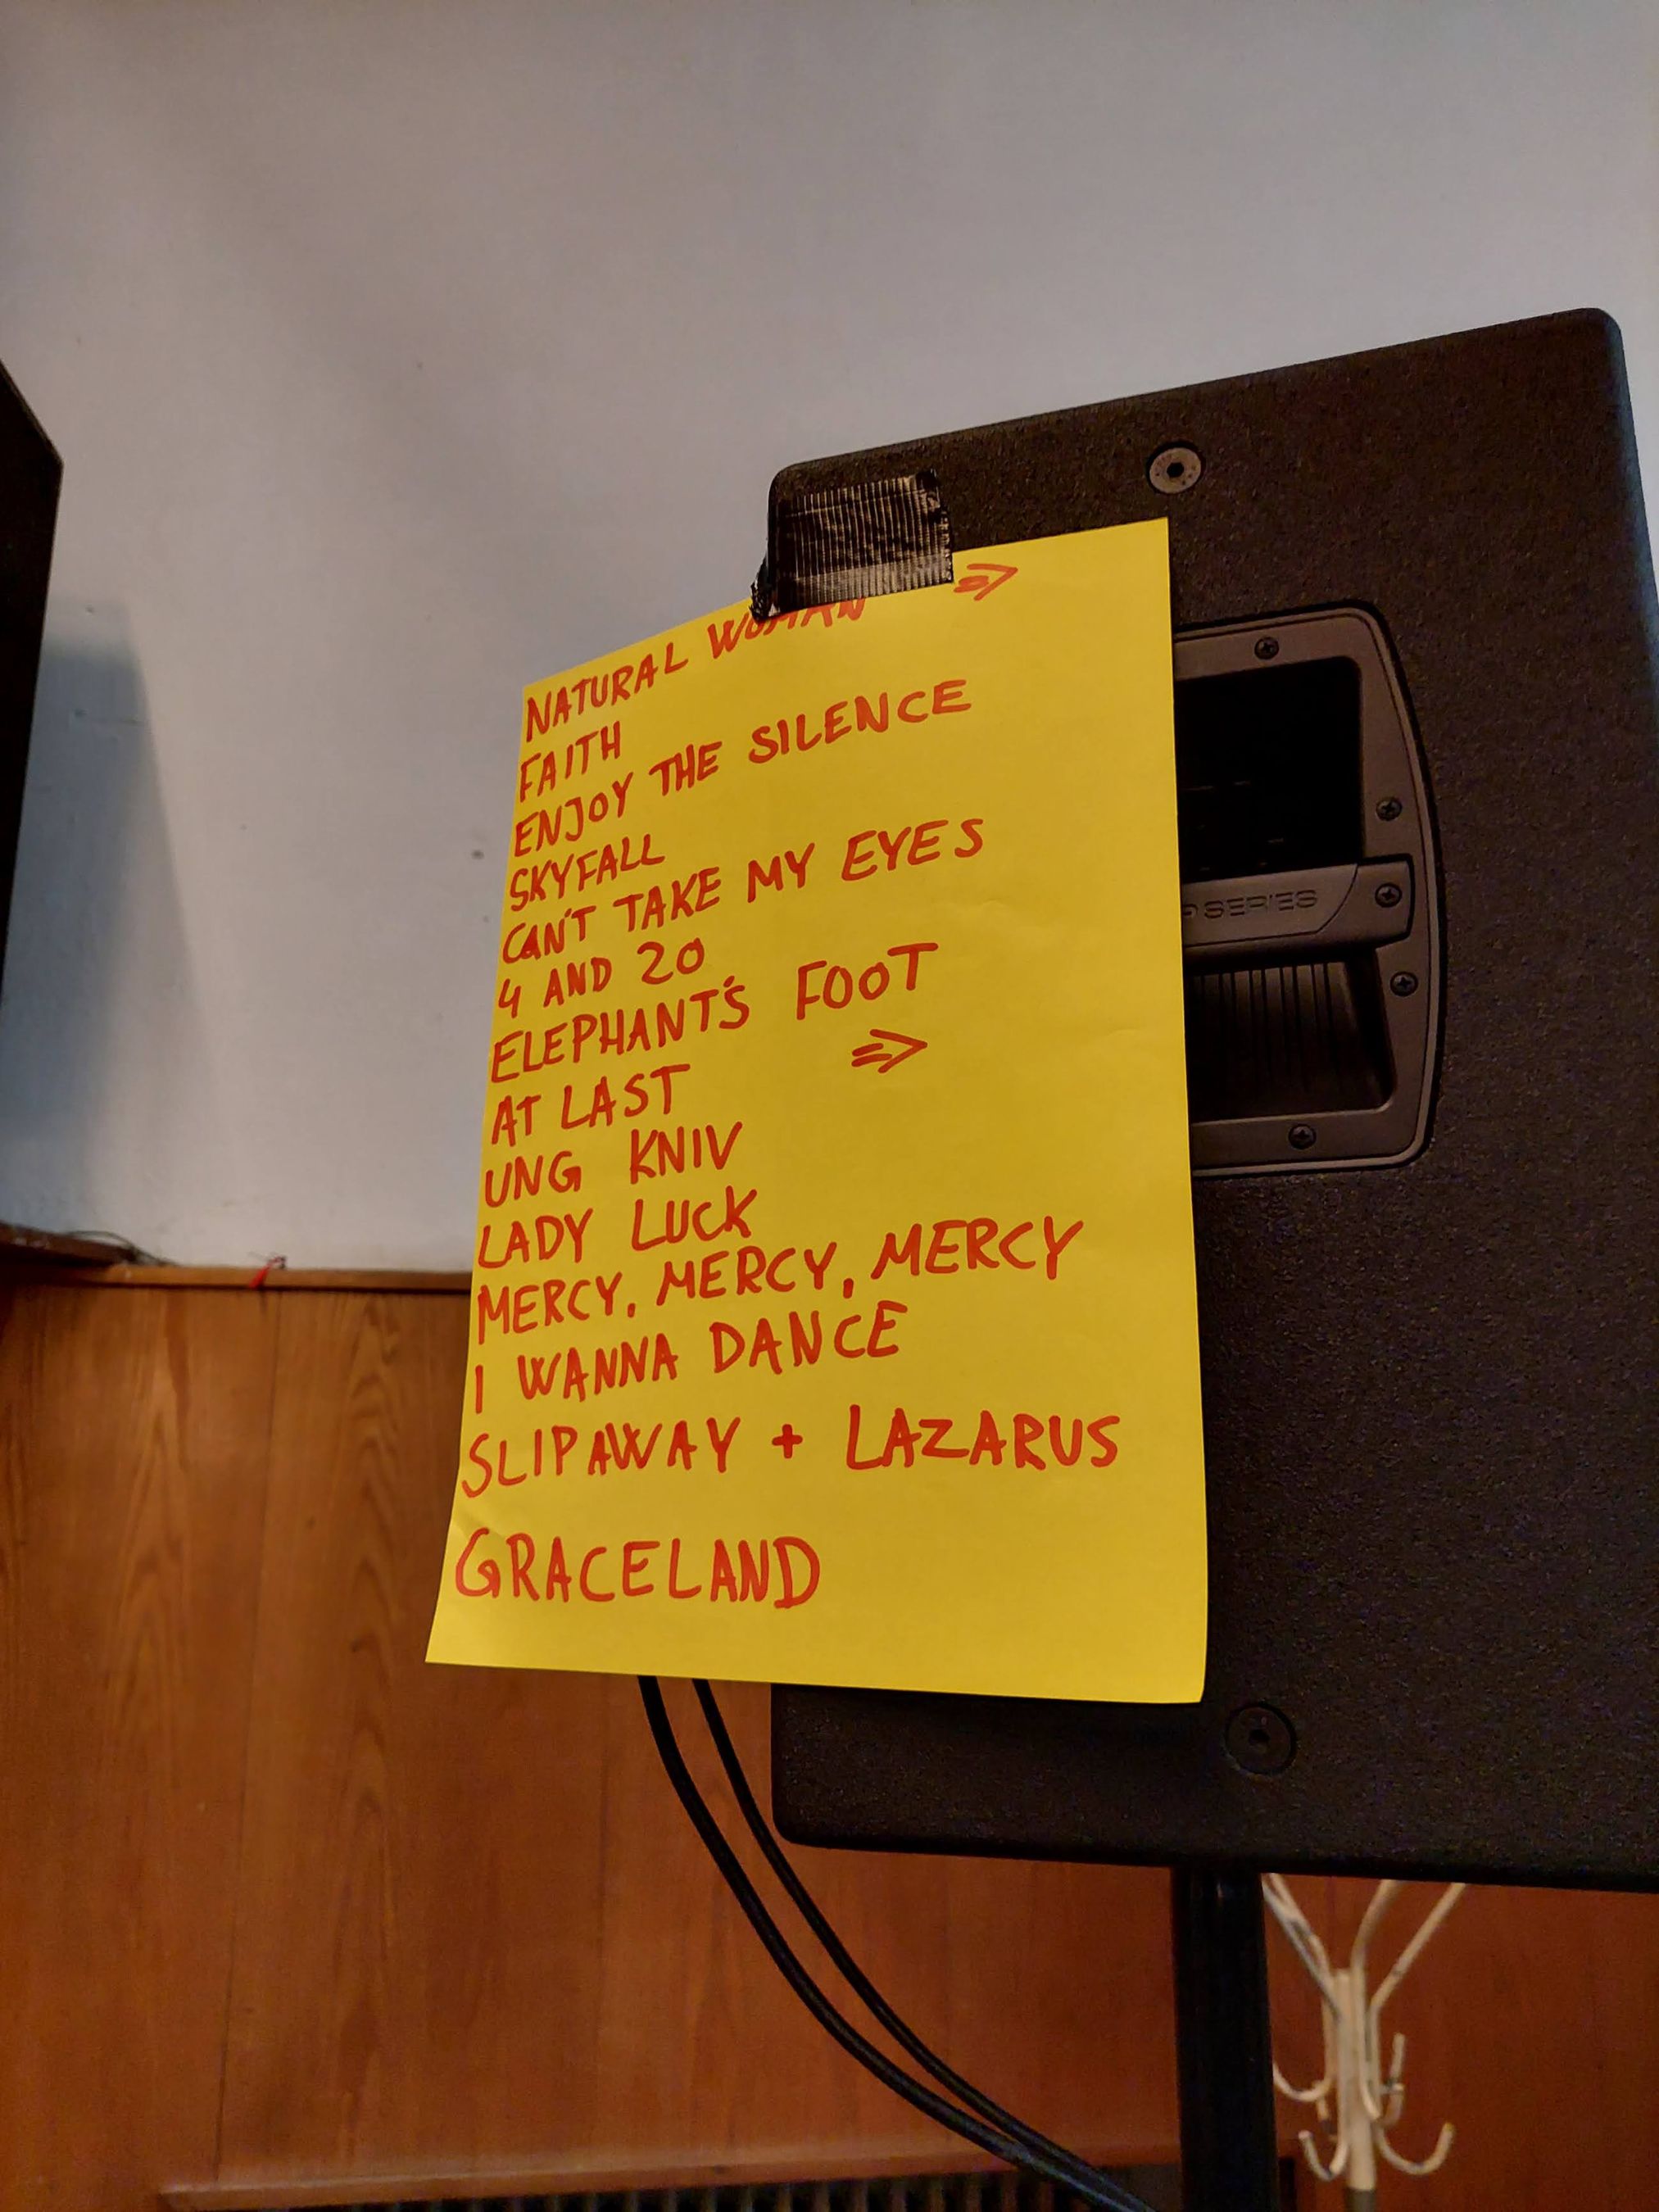 NATURAL WOMAN ⇒
FAITH
ENJOY THE SILENCE
SKYFALL
CAN'T TAKE MY EYES
4 AND 20
ELEPHANT'S FOOT
AT LAST ⇒
UNG KNIV
LADY LUCK
MERCY, MERCY, MERCY
I WANNA DANCE
SLIPAWAY + LAZARUS
GRACELAND
SERIES